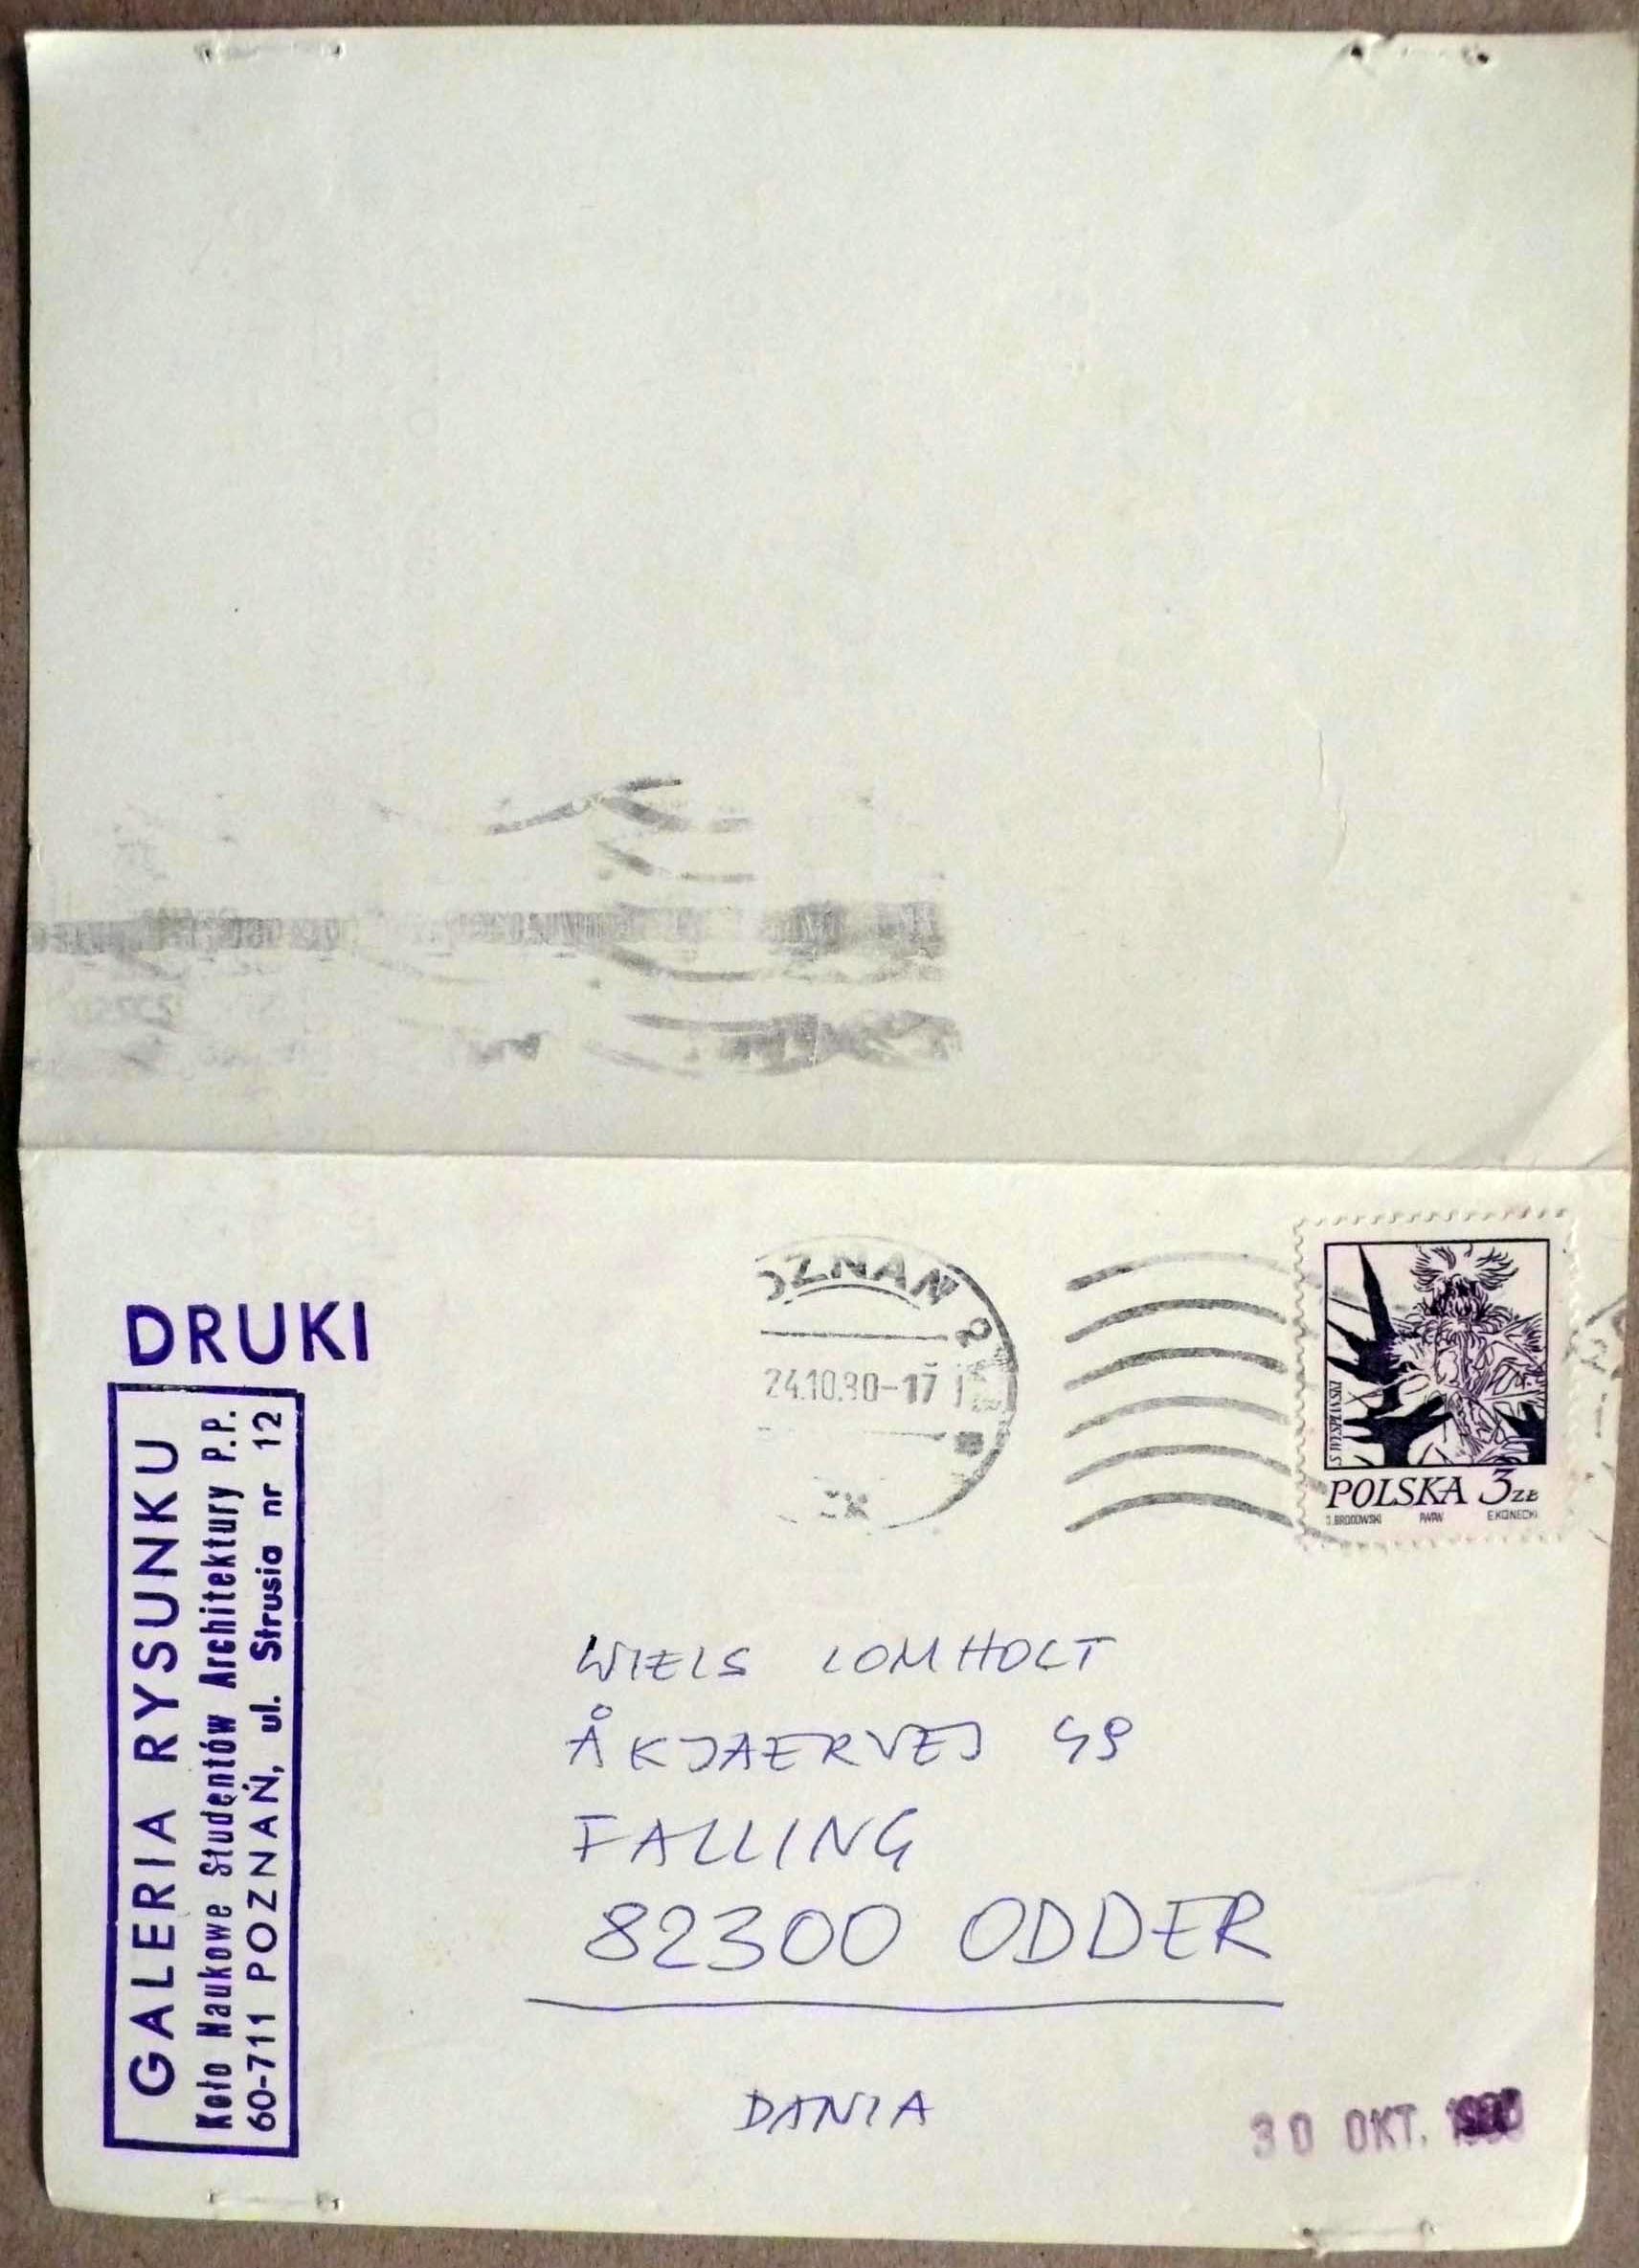 DRUKI
GALERIA RYSUNKU
Koło Naukowe Studentów Architektury P.P.
60-711 POZNAŃ, ul. Strusia nr 12
OZNAŃ 2
24.10.80-17
S. WYSPIAŃSKI
POLSKA 3 ZŁ
J. BRODOWSKI PWPW E. KONECKI
WIELS LOMHOLT
ÅKJAERVEJ 49
FALLING
82300 ODDER
DANIA
30 OKT. 1980